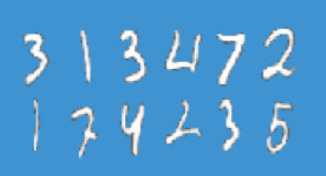 3 1 3 4 7 2
1 7 4 2 3 5